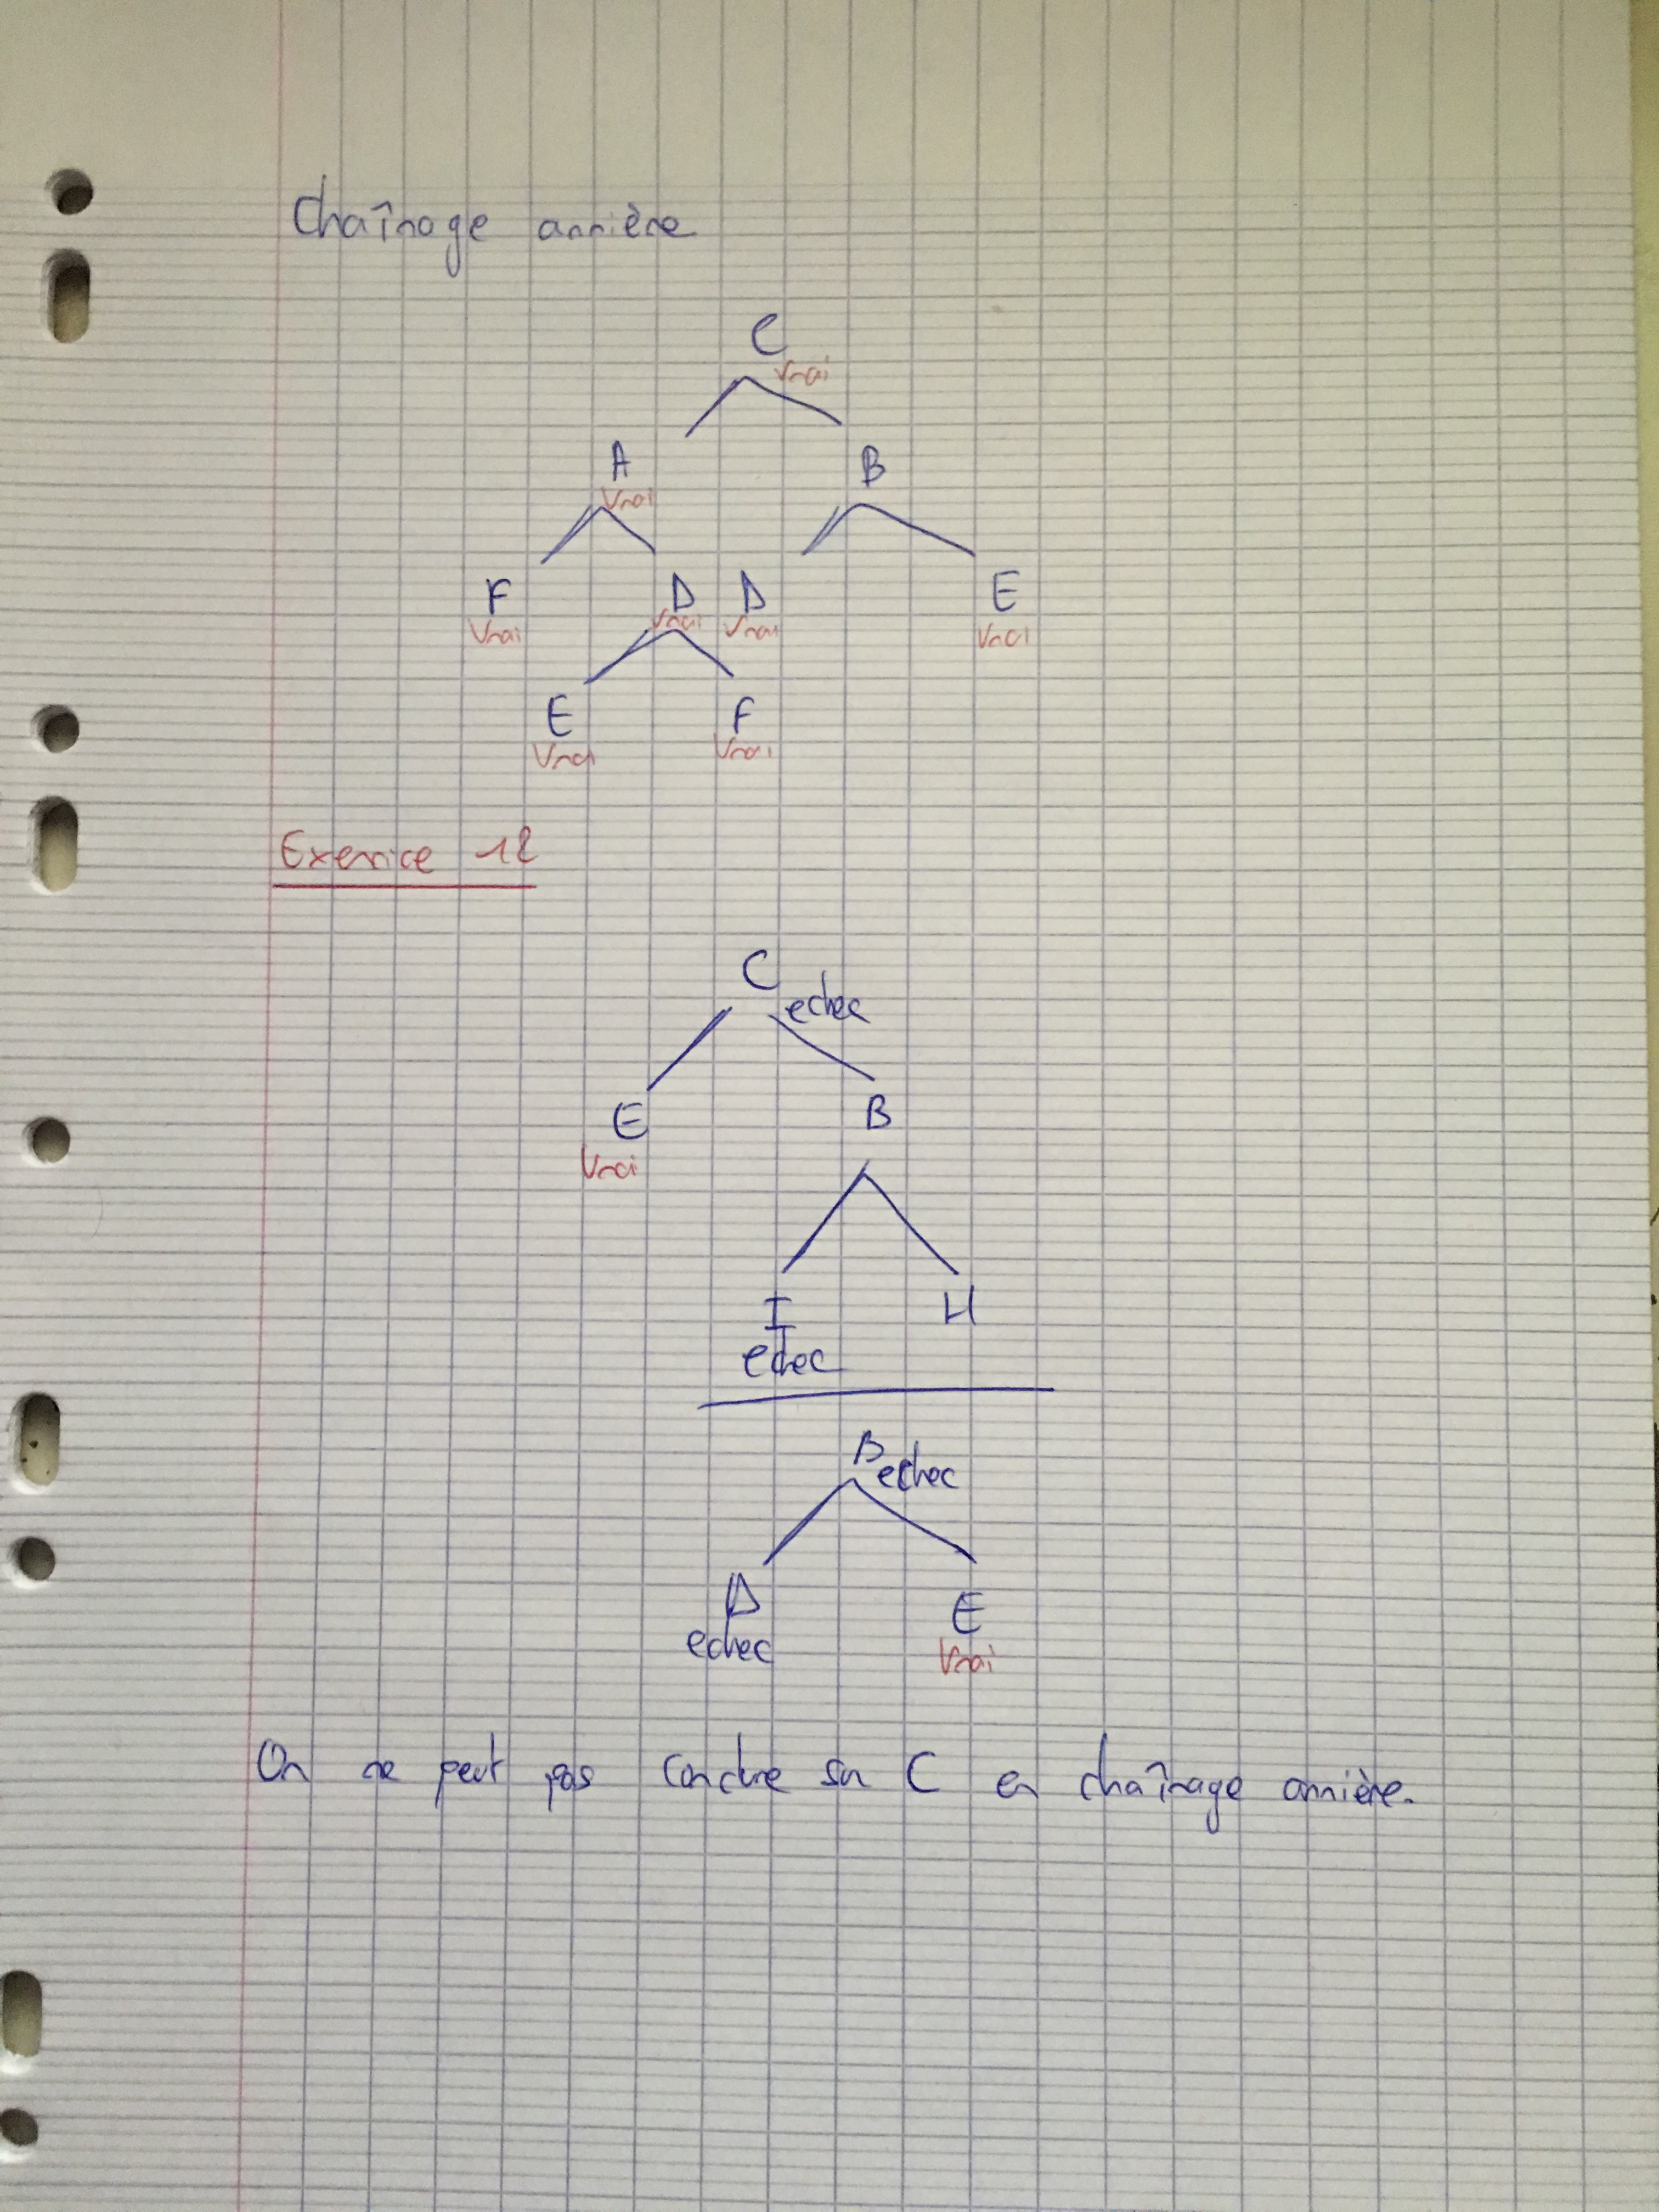 Chaînage arrière
C
Vrai
A B
Vrai
F D D E
Vrai Vrai Vrai Vrai
E F
Vrai Vrai
Exercice 12
C
echec
E B
Vrai
I H
echec
B
echec
D E
echec Vrai
On ne peut pas conclure sur C en chaînage arrière.